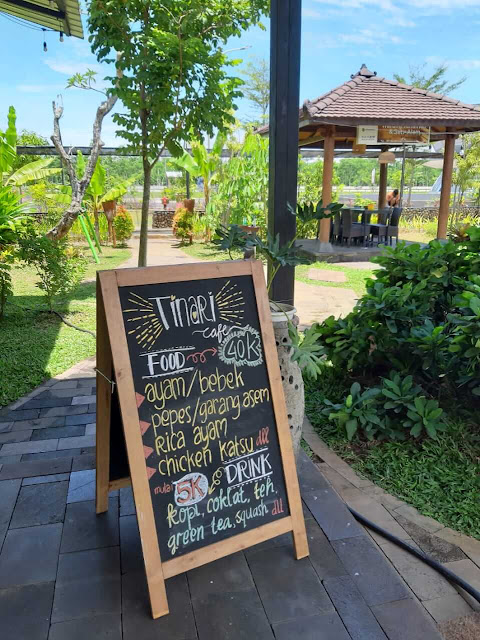 TINARI
cafe
FOOD 40K
ayam/bebek
pepes/garang asem
rica ayam
chicken katsu dll
mulai 5K DRINK
kopi, coklat, teh,
green tea, squash dll